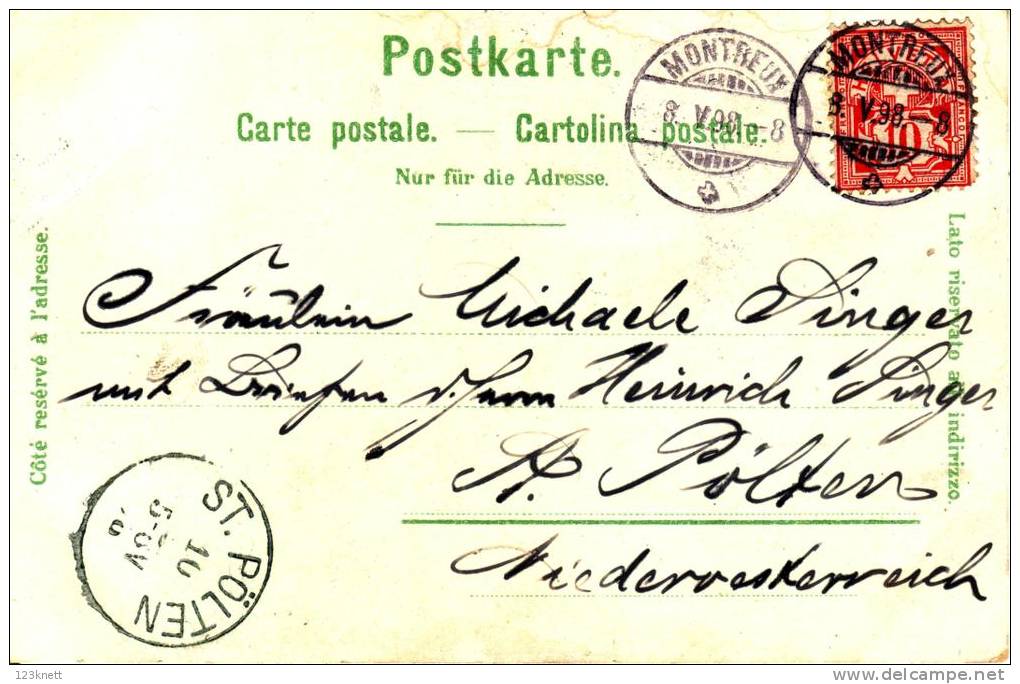 Postkarte.
Carte postale. — Cartolina postale.
Nur für die Adresse.
MONTREUX
8. V. 98. – 8
MONTREUX
8. V. 98 – 8
10
Côté resérvé à l'adresse.
Lato riservato all' indirizzo.
Fräulein Michaele Singer
mit Briefen d. Herrn Heinrich Singer
St. Pölten
Niederoesterreich
ST. PÖLTEN
10
123knett
delcampe.net